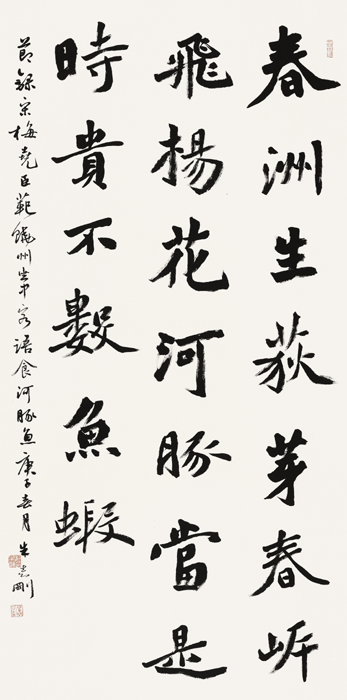 春洲生荻芽春岸
飛楊花河豚當是
時貴不數魚蝦
節錄宋梅堯臣範饒州坐中客語食河豚魚庚子春月朱志剛